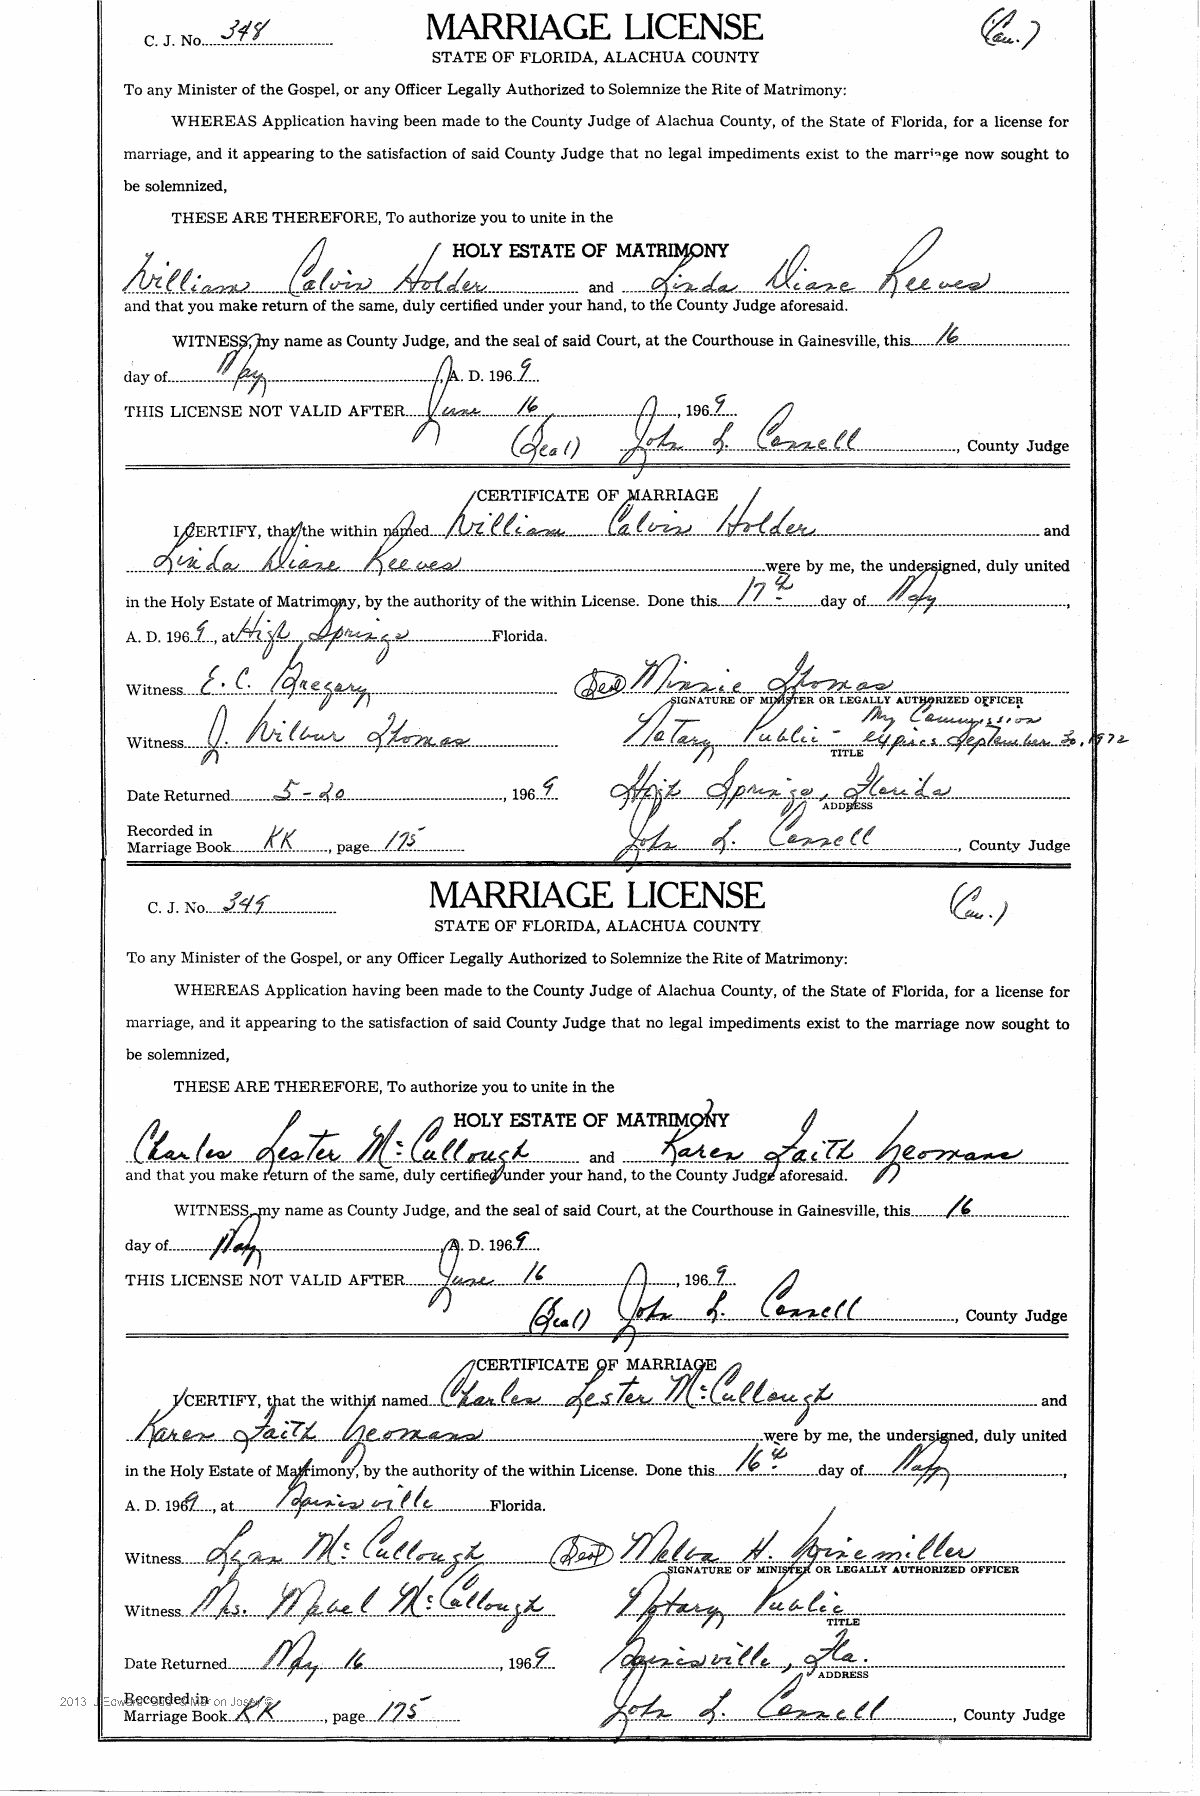 C. J. No. 348 MARRIAGE LICENSE (Cau.)
STATE OF FLORIDA, ALACHUA COUNTY
To any Minister of the Gospel, or any Officer Legally Authorized to Solemnize the Rite of Matrimony:
WHEREAS Application having been made to the County Judge of Alachua County, of the State of Florida, for a license for
marriage, and it appearing to the satisfaction of said County Judge that no legal impediments exist to the marriage now sought to
be solemnized,
THESE ARE THEREFORE, To authorize you to unite in the
HOLY ESTATE OF MATRIMONY
William Calvin Holder and Linda Diane Reeves
and that you make return of the same, duly certified under your hand, to the County Judge aforesaid.
WITNESS, my name as County Judge, and the seal of said Court, at the Courthouse in Gainesville, this 16
day of May, A. D. 1969
THIS LICENSE NOT VALID AFTER June 16, 1969
(Seal) John L. Connell, County Judge
CERTIFICATE OF MARRIAGE
I CERTIFY, that the within named William Calvin Holder and
Linda Diane Reeves were by me, the undersigned, duly united
in the Holy Estate of Matrimony, by the authority of the within License. Done this 17th day of May,
A. D. 1969, at High Springs Florida.
Witness E. C. Gregory (Seal) Minnie Thomas
SIGNATURE OF MINISTER OR LEGALLY AUTHORIZED OFFICER
My Commission
Witness J. Wilbur Thomas Notary Public - expires September 30, 1972
TITLE
Date Returned 5-20, 1969 High Springs, Florida
ADDRESS
Recorded in
Marriage Book KK, page 175 John L. Connell, County Judge
C. J. No. 349 MARRIAGE LICENSE (Cau.)
STATE OF FLORIDA, ALACHUA COUNTY
To any Minister of the Gospel, or any Officer Legally Authorized to Solemnize the Rite of Matrimony:
WHEREAS Application having been made to the County Judge of Alachua County, of the State of Florida, for a license for
marriage, and it appearing to the satisfaction of said County Judge that no legal impediments exist to the marriage now sought to
be solemnized,
THESE ARE THEREFORE, To authorize you to unite in the
HOLY ESTATE OF MATRIMONY
Charles Lester McCullough and Karen Faith Yeomans
and that you make return of the same, duly certified under your hand, to the County Judge aforesaid.
WITNESS, my name as County Judge, and the seal of said Court, at the Courthouse in Gainesville, this 16
day of May, A. D. 1969
THIS LICENSE NOT VALID AFTER June 16, 1969
(Seal) John L. Connell, County Judge
CERTIFICATE OF MARRIAGE
I CERTIFY, that the within named Charles Lester McCullough and
Karen Faith Yeomans were by me, the undersigned, duly united
in the Holy Estate of Matrimony, by the authority of the within License. Done this 16th day of May,
A. D. 1969, at Gainesville Florida.
Witness Lynn McCullough (Seal) Melva H. Winemiller
SIGNATURE OF MINISTER OR LEGALLY AUTHORIZED OFFICER
Witness Mrs. Mabel McCullough Notary Public
TITLE
Date Returned May 16, 1969 Gainesville, Fla.
ADDRESS
2013 Recorded in
Marriage Book KK, page 175 John L. Connell, County Judge